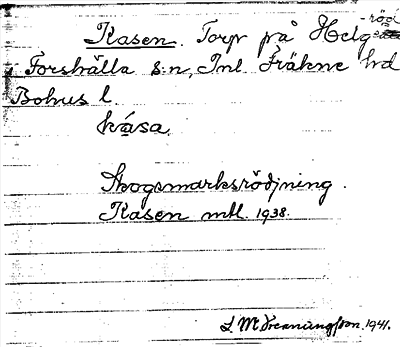 Kasen. Torp på Helgeröd
i Forshälla s:n, Inl Fräkne hd
Bohus l.
kåsa
Skogsmarksröjning.
Kasen mtl. 1938.
1941.